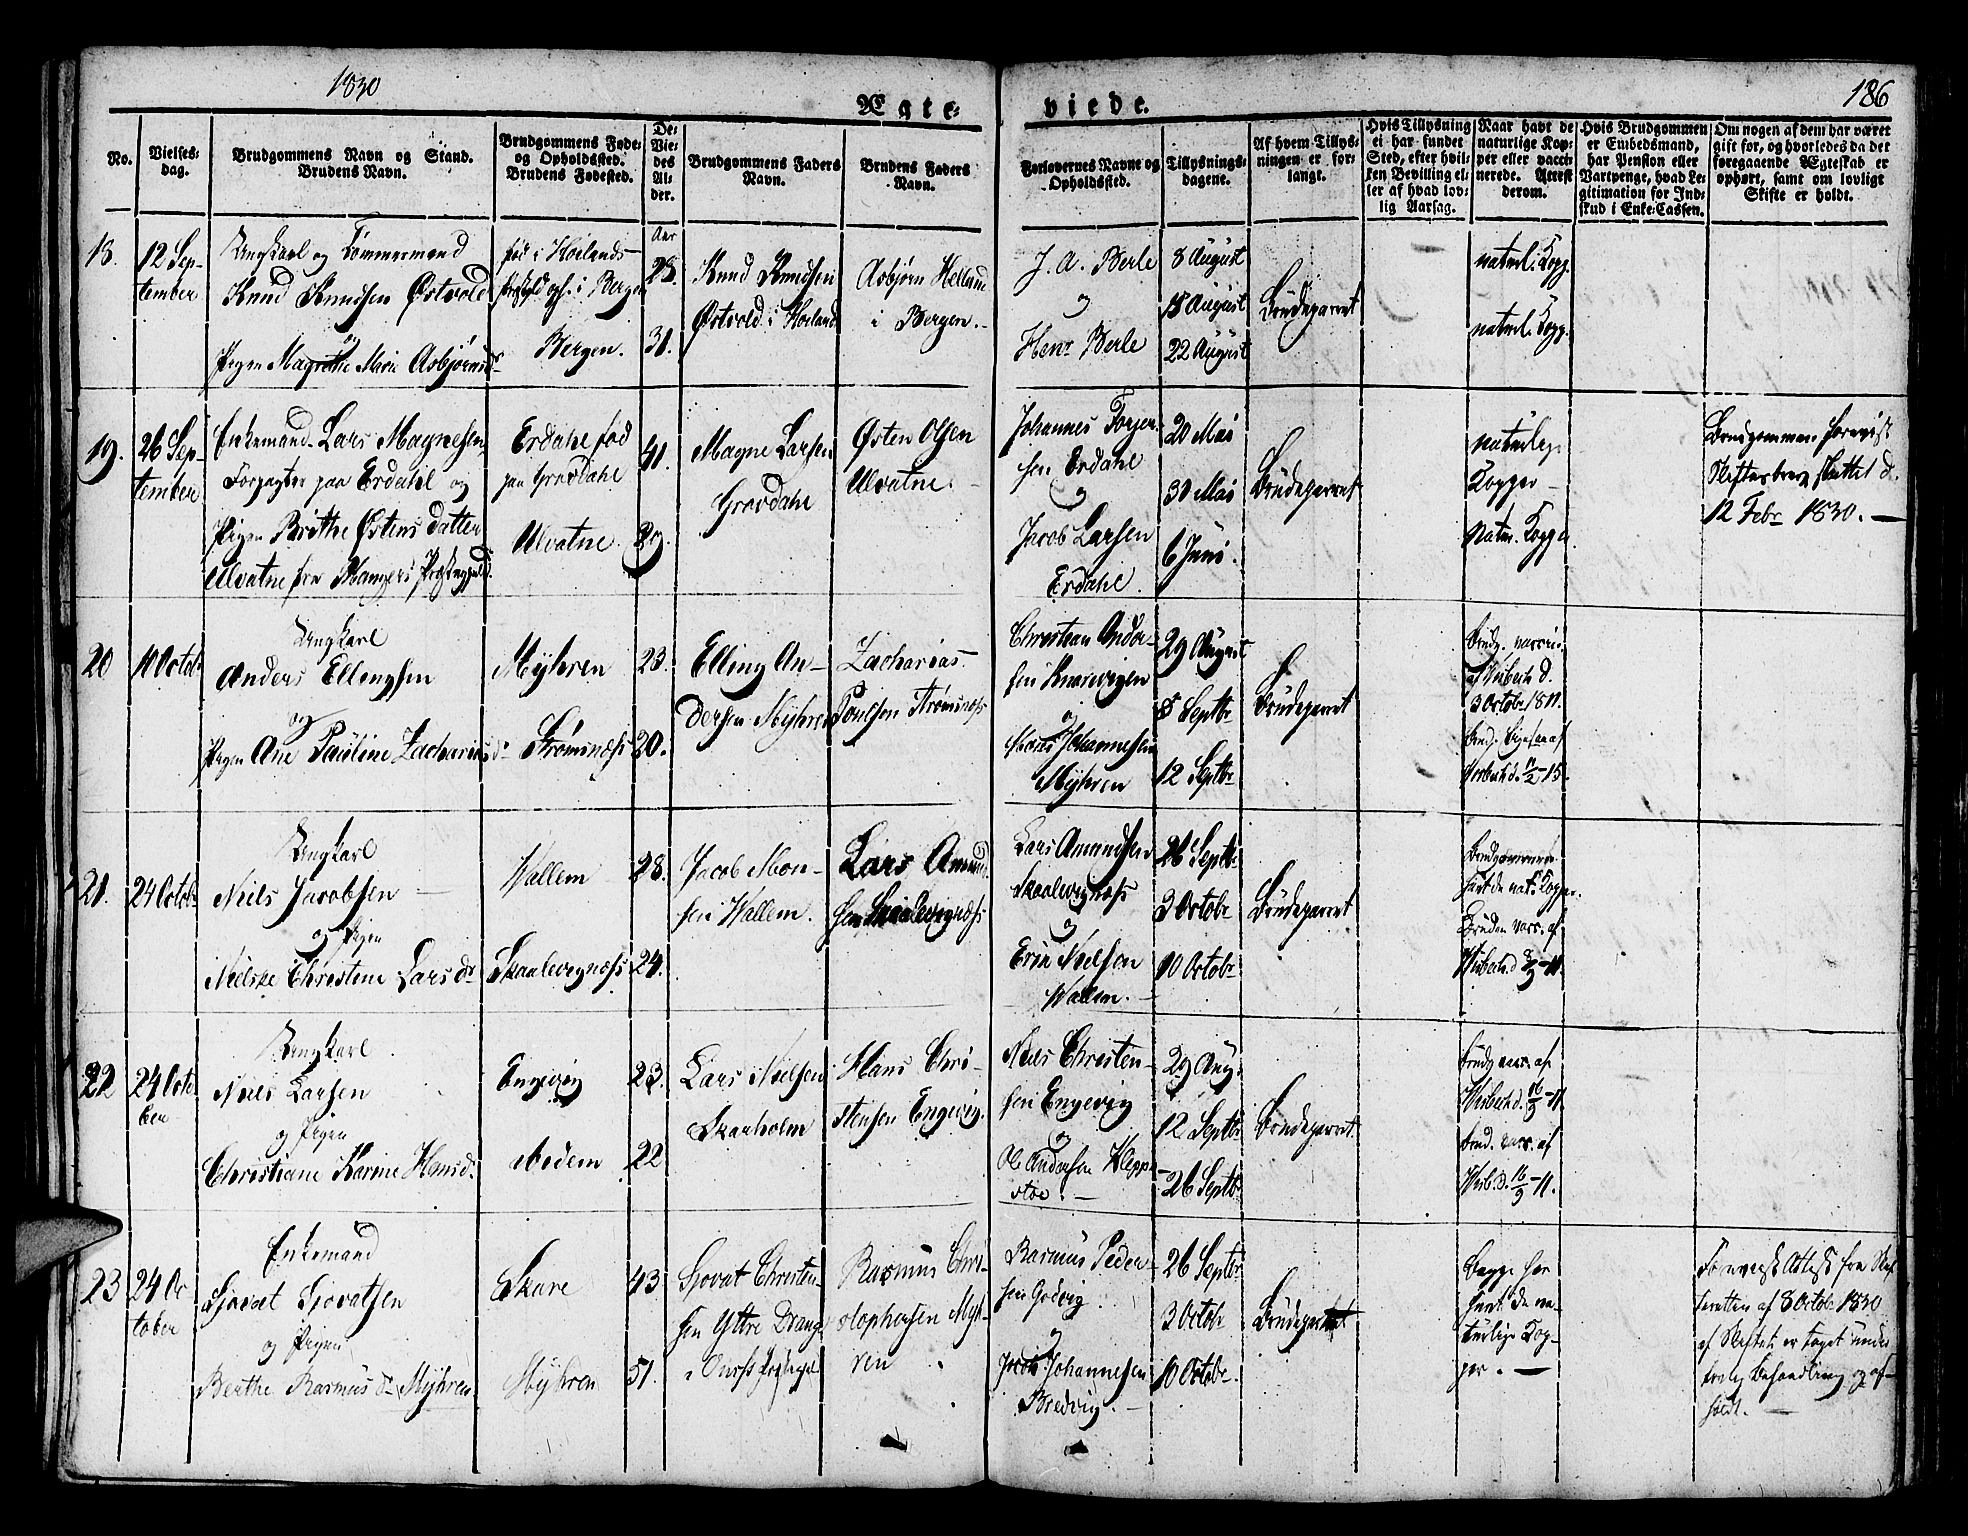 1830
186
Ægte-
viede.
No.
Vielses-
dag.
Brudgommens Navn og Stand.
Brudens Navn.
Brudgommens Føde-
og Opholdssted.
Brudens Fødested.
De-
Vie-
des
Al-
der.
Brudgommens Faders
Navn.
Brudens Faders
Navn.
Forlovernes Navne og
Opholdssted.
Tillysnings-
dagene.
Af hvem Tillys-
ningen er for-
langt.
Hvis Tillysning
ei har fundet
Sted, efter hvil-
ken Bevilling el-
ler af hvad lov-
lig Aarsag.
Naar havt de
naturlige Kop-
per eller vacci-
nerede. Attest
derom.
Hvis Brudgommen
er Embedsmand,
har Pension eller
Vartpenge, hvad Le-
gitimation for Ind-
skud i Enke-Cassen.
Om nogen af dem har været
gift før, og hvorledes da det
foregaaende Ægteskab er
ophørt, samt om lovligt
Skifte er holdt.
18.
12 Sep-
tember
Ungkarl og Tømmermand
Knud Knudsen Østvold
og
Pigen Magrethe Marie Asbjørnsd
fød i Høilands
i Bergen
Bergen.
Aar
28.
31.
Knud Knudsen
Østvold i Høiland
Asbjørn Helland
i Bergen.
J. A. Berle
og
Henr Berle
8 August
15 August
22 August
Brudeparret
naturl. Kopp.
naturl. Kopp.
19.
26 Sep-
tember
Enkemand Lars Magnesen
Forpagter paa Erdahl og
Pigen Brithe Østens datter
Ulvatne fra Mangers Præstegjeld.
Erdahl fød
paa Grovdahl
Ulvatne.
41.
29.
Magne Larsen
Grovdahl
Østen Olsen
Ulvatne.
Johannes
sen Erdahl
og
Jacob Larsen
Erdahl.
20 Mai
30 Mai
6 Juni.
Brudeparret
naturlige
Kopper
Natur. Kopper
Brudgommen forevist
Skiftebrev sluttet d.
12 Febr 1830.
20
10 Octob
Ungkarl
Anders Ellingsen
og
Pigen Ane Pauline Zacharias d
Myhren
Strømsnæs
23.
20.
Elling An-
dersen Myhren
Zacharias
Poulsen Strømsnæs
Christian Ander-
sen Knarvigen
og
Johannessen
Myhren
29 August
5 Septbr
12 Septbr
Brudeparret
Brudg. vaccin.
af Wisbech d.
3 Octobr 1811.
Wisbech d. 11/2-15.
21.
24 Octob
Ungkarl
Niels Jacobsen
og Pigen
Nilske Christine Lars dr
Wallem
Skaalevignæs
28.
24.
Jacob Mon-
sen Wallem.
Lars Amund-
sen Skaalevignæs
Lars Amundsen
Skaalevignæs
og
Erik Nielsen
Wallem.
26 Septbr
3 Octobr
10 Octobr
Brudeparret
Brudgommen
havt de nat. Kopper.
Bruden vacc. af
Wisbech d
22
24 Octo
ber
Ungkarl
Niels Larsen
og Pigen
Christiane Karine Hansd.
Engevig
23.
22
Lars Nielsen
Skaaholm
Hans Chri-
stensen Engevig.
Niels Christen-
sen Engevig
og
Ole Andersen Klepp-
stoe.
29 Aug.
12 Septb
26 Septb
Brudeparret.
Brudg vacc. af
Wisbech d. 16/9-11.
Brud. vacc. af
Wisb. d. 16/9-11.
23
24 Oc
tober
Enkemand
Sjovat Sjovatsen
og Pigen
Berthe Rasmus d. Myhren
Skare
Myhren
43
51.
Sjovat Christen-
sen Yttre Drang-
Rasmus Chri-
stophersen Myh-
ren
Rasmus Peder-
sen Godvig.
og
Johannesen
Bredvig.
26 Septbr
3 Octobr
10 Octobr.
Brudeparret
Begge har
havt de na-
turlige Kop-
per.
Foreviist Attest fra Skif
teretten af 8 Octobr 1830
af Skiftet er taget under
lovlig Behandling og af-
holdt.